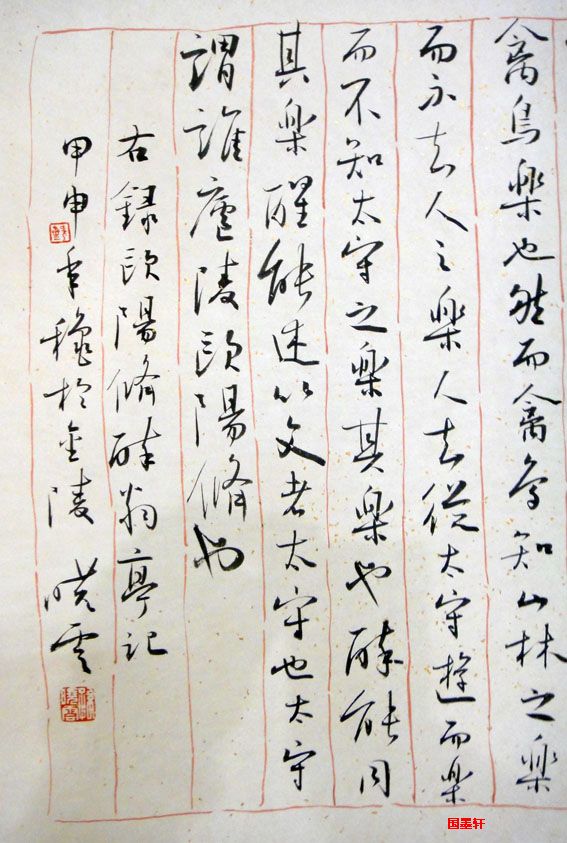 禽鳥樂也然而禽鳥知山林之樂
而不知人之樂人知從太守遊而樂
而不知太守之樂其樂也醉能同
其樂醒能述以文者太守也太守
謂誰廬陵歐陽脩也
右錄歐陽脩醉翁亭記
甲申年穐於金陵 曉雲
国墨轩